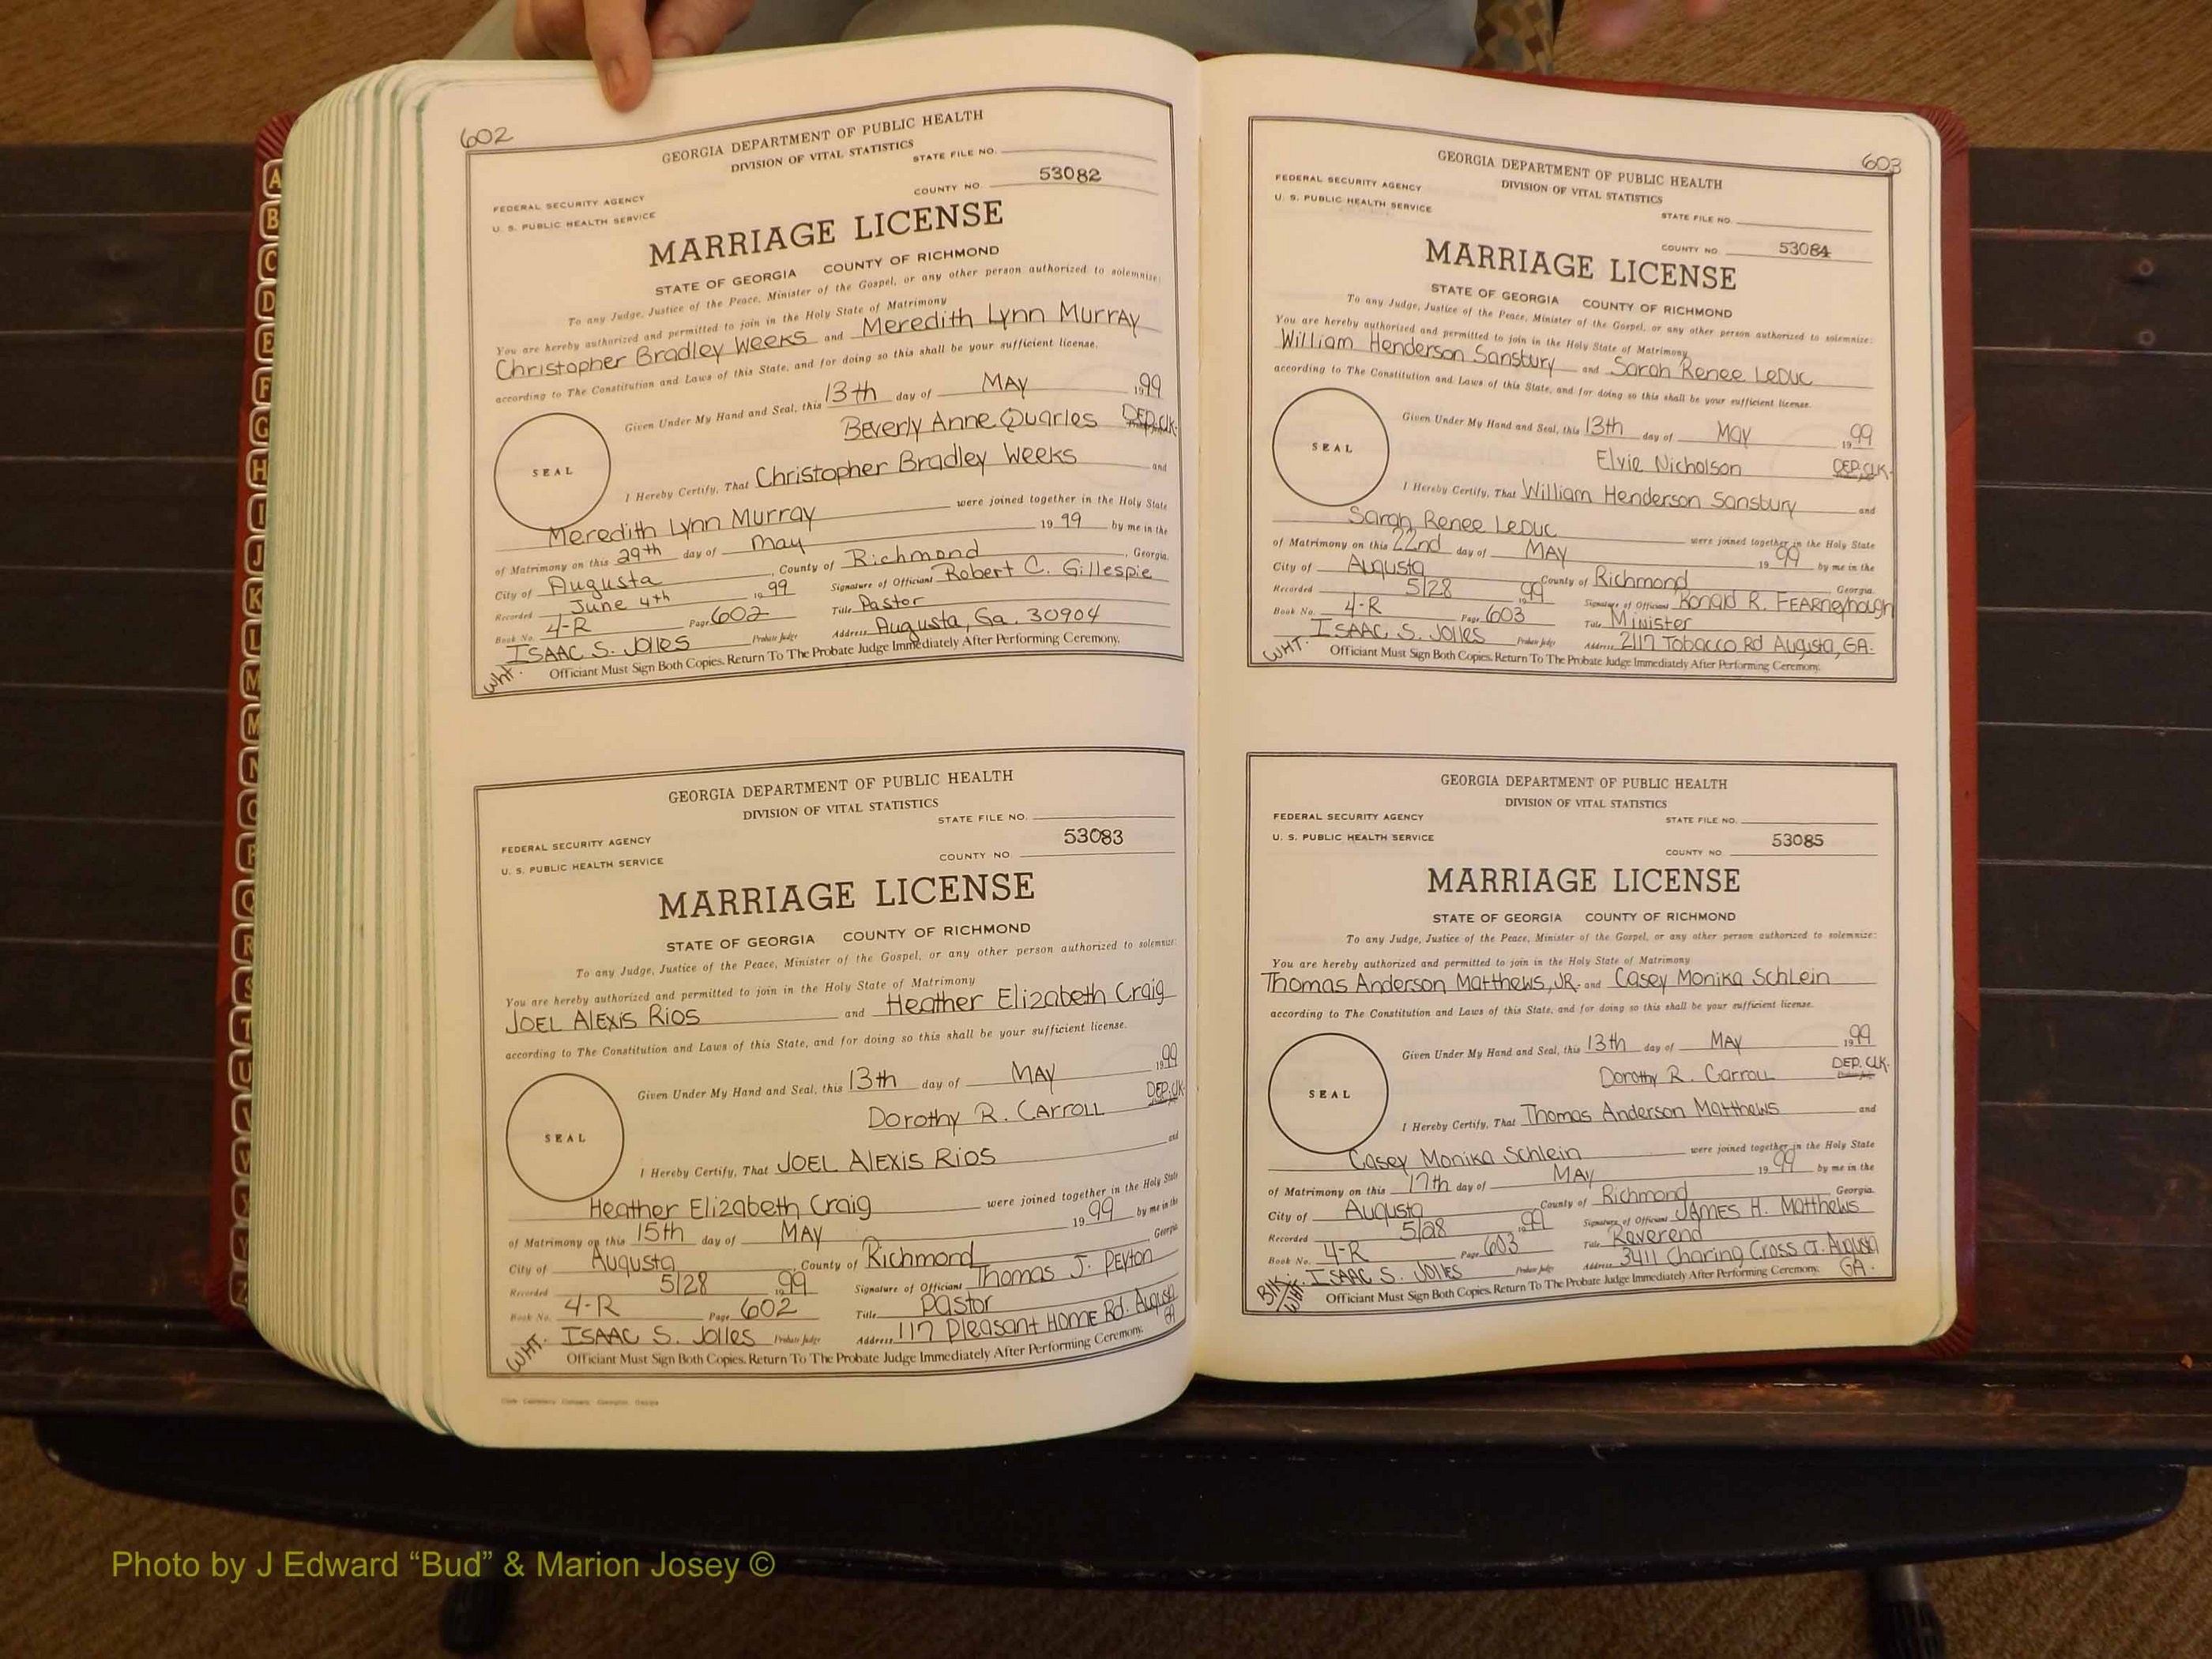 602
GEORGIA DEPARTMENT OF PUBLIC HEALTH
DIVISION OF VITAL STATISTICS
STATE FILE NO.
FEDERAL SECURITY AGENCY
COUNTY NO. 53082
U. S. PUBLIC HEALTH SERVICE
MARRIAGE LICENSE
STATE OF GEORGIA COUNTY OF RICHMOND
To any Judge, Justice of the Peace, Minister of the Gospel, or any other person authorized to solemnize:
You are hereby authorized and permitted to join in the Holy State of Matrimony
Christopher Bradley Weeks and Meredith Lynn Murray
according to The Constitution and Laws of this State, and for doing so this shall be your sufficient license.
Given Under My Hand and Seal, this 13th day of MAY 1999
Beverly Anne Quarles DEP. CLK.
SEAL
I Hereby Certify, That Christopher Bradley Weeks and
Meredith Lynn Murray were joined together in the Holy State
of Matrimony on this 29th day of May 19 99 by me in the
City of Augusta, County of Richmond, Georgia.
Recorded June 4th 1999 Signature of Officiant Robert C. Gillespie
Book No. 4-R Page 602 Title Pastor
ISAAC S. Jolles Probate Judge Address Augusta, Ga. 30904
WHT. Officiant Must Sign Both Copies. Return To The Probate Judge Immediately After Performing Ceremony.
GEORGIA DEPARTMENT OF PUBLIC HEALTH
DIVISION OF VITAL STATISTICS
STATE FILE NO.
FEDERAL SECURITY AGENCY
53083
U. S. PUBLIC HEALTH SERVICE
COUNTY NO
MARRIAGE LICENSE
STATE OF GEORGIA COUNTY OF RICHMOND
To any Judge, Justice of the Peace, Minister of the Gospel, or any other person authorized to solemnize:
You are hereby authorized and permitted to join in the Holy State of Matrimony
JOEL ALEXIS RIOS and Heather Elizabeth Craig
according to The Constitution and Laws of this State, and for doing so this shall be your sufficient license.
Given Under My Hand and Seal, this 13th day of MAY 1999
Dorothy R. CARROLL DEP. CLK.
SEAL
I Hereby Certify, That JOEL ALEXIS RIOS and
Heather Elizabeth Craig were joined together in the Holy State
of Matrimony on this 15th day of MAY 19 99 by me in the
City of Augusta, County of Richmond, Georgia
Recorded 5/28 1999 Signature of Officiant Thomas J. Peyton
Book No. 4-R Page 602 Title Pastor
ISAAC S. Jolles Probate Judge Address 117 Pleasant HOME Rd. Augusta GA
WHT. Officiant Must Sign Both Copies. Return To The Probate Judge Immediately After Performing Ceremony.
603
GEORGIA DEPARTMENT OF PUBLIC HEALTH
DIVISION OF VITAL STATISTICS
FEDERAL SECURITY AGENCY
U. S. PUBLIC HEALTH SERVICE
STATE FILE NO.
COUNTY NO 53084
MARRIAGE LICENSE
STATE OF GEORGIA COUNTY OF RICHMOND
To any Judge, Justice of the Peace, Minister of the Gospel, or any other person authorized to solemnize:
You are hereby authorized and permitted to join in the Holy State of Matrimony
William Henderson Sansbury and Sarah Renee LeDuc
according to The Constitution and Laws of this State, and for doing so this shall be your sufficient license.
Given Under My Hand and Seal, this 13th day of May 1999
Elvie Nicholson DEP. CLK.
SEAL
I Hereby Certify, That William Henderson Sansbury and
Sarah Renee LeDuc were joined together in the Holy State
of Matrimony on this 22nd day of MAY 19 99 by me in the
City of Augusta County of Richmond Georgia.
Recorded 5/28 99 Signature of Officiant Ronald R. FEARneyhough
Book No. 4-R Page 603 Title Minister
ISAAC S. Jolles Probate Judge Address 2117 Tobacco Rd Augusta, GA.
WHT. Officiant Must Sign Both Copies. Return To The Probate Judge Immediately After Performing Ceremony.
GEORGIA DEPARTMENT OF PUBLIC HEALTH
DIVISION OF VITAL STATISTICS
FEDERAL SECURITY AGENCY
STATE FILE NO.
U. S. PUBLIC HEALTH SERVICE
COUNTY NO 53085
MARRIAGE LICENSE
STATE OF GEORGIA COUNTY OF RICHMOND
To any Judge, Justice of the Peace, Minister of the Gospel, or any other person authorized to solemnize:
You are hereby authorized and permitted to join in the Holy State of Matrimony
Thomas Anderson Matthews, JR. and Casey Monika Schlein
according to The Constitution and Laws of this State, and for doing so this shall be your sufficient license.
Given Under My Hand and Seal, this 13th day of MAY 1999
Dorothy R. Carroll DEP. CLK.
SEAL
I Hereby Certify, That Thomas Anderson Matthews and
Casey Monika Schlein were joined together in the Holy State
of Matrimony on this 17th day of MAY 19 99 by me in the
City of Augusta County of Richmond Georgia.
Recorded 5/28 1999 Signature of Officiant JAMES H. Matthews
Book No. 4-R Page 603 Title Reverend
ISAAC S. Jolles Probate Judge Address 3411 Charing Cross CT. Augusta GA.
WHT. Officiant Must Sign Both Copies. Return To The Probate Judge Immediately After Performing Ceremony.
A
B
C
D
E
F
G
H
I
J
K
L
M
M
N
O
P
Q
R
S
T
U
V
W
X
Y
Z
Photo by J Edward “Bud” & Marion Josey ©